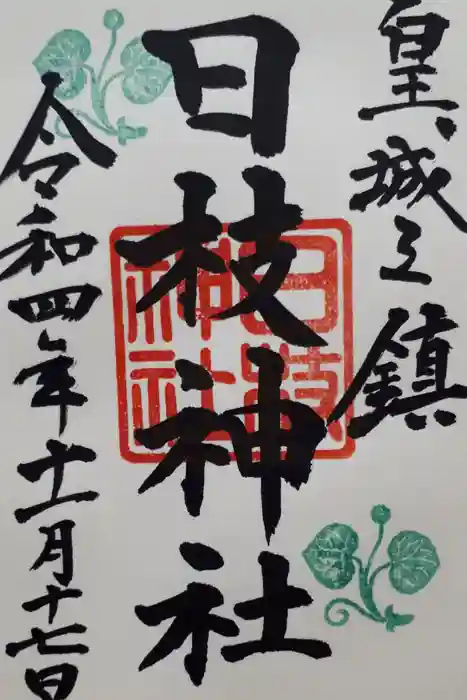 皇城之鎮
日枝神社
令和四年十一月十七日
日枝神社